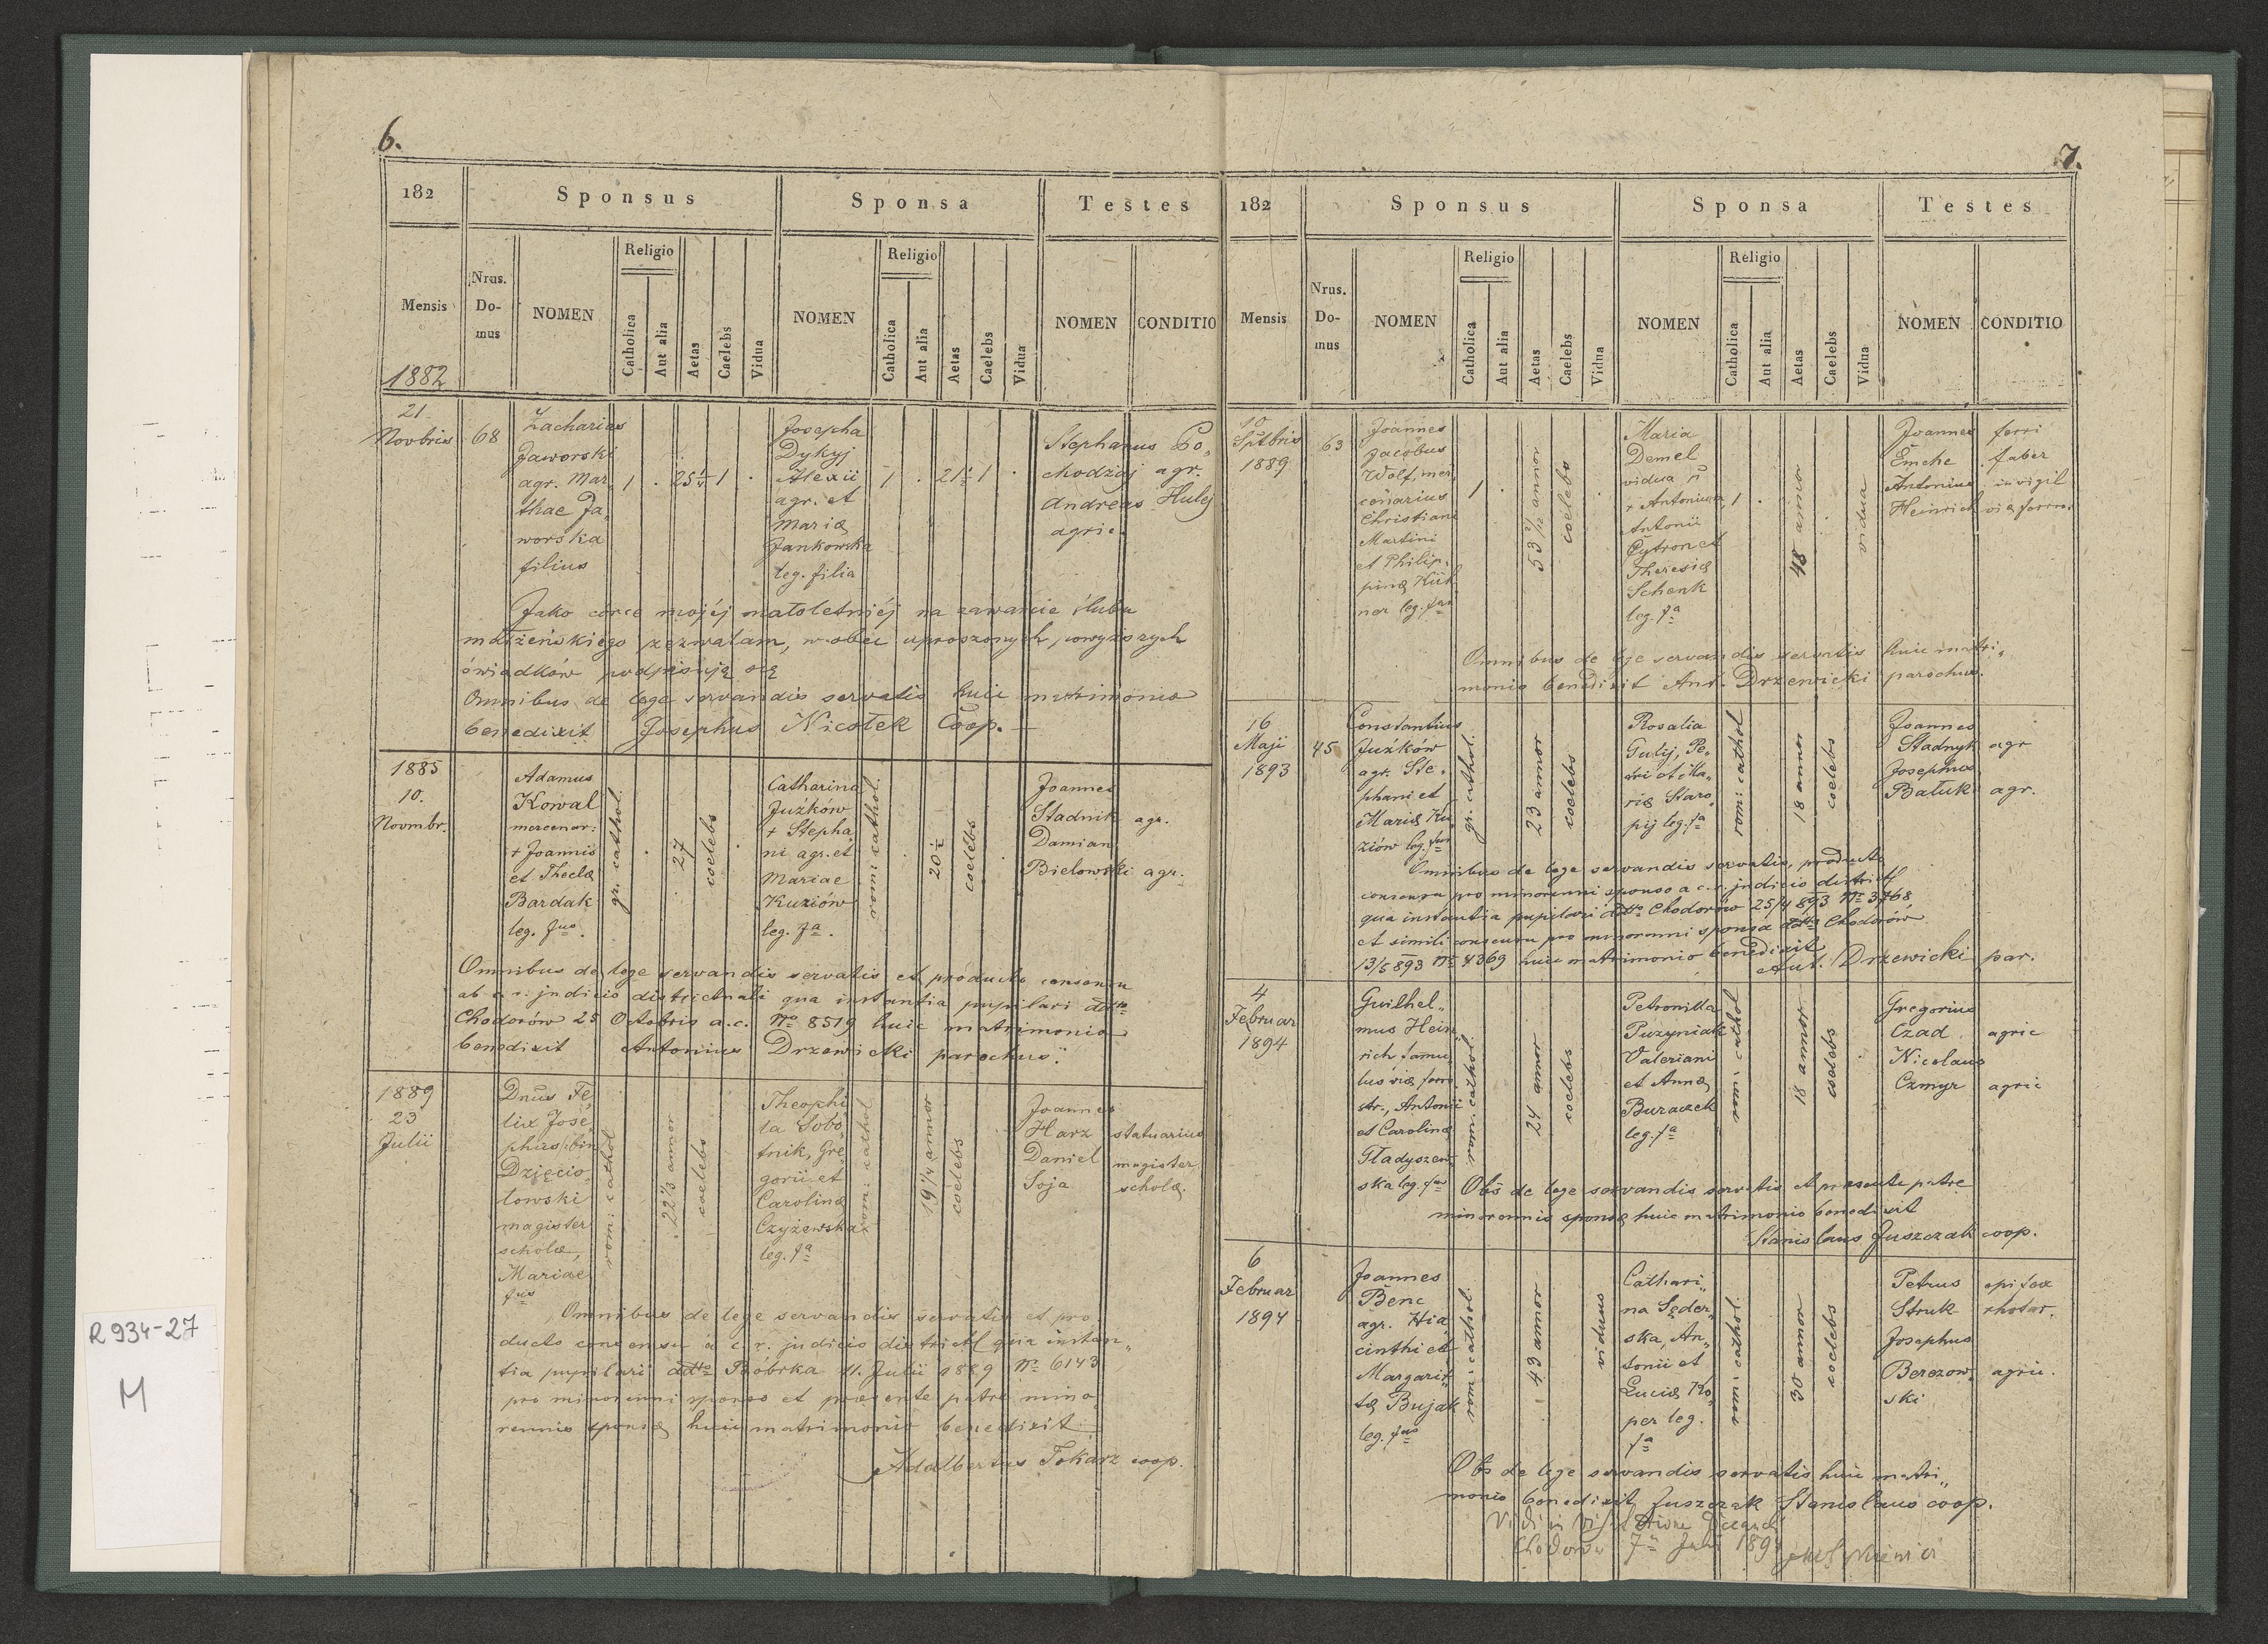 6.
182
Sponsus
Sponsa
Testes
Mensis
Nrus. Do-mus
NOMEN
Religio
Catholica
Aut alia
Aetas
Caelebs
Vidua
NOMEN
Religio
Catholica
Aut alia
Aetas
Caelebs
Vidua
NOMEN
CONDITIO
1882
21
Novbris
68
Zacharias
Jaworski
agr. Mar
thae Ja„
worska
filius
1 . 25 1/4 1 .
Josepha
Dykyj
Alexii
agr. et
Mariæ
Jankowska
leg. filia
1 . 21 1/2 1 .
Stephanus Po„
chodzaj agr.
Andreas Hulej
agric.
Jako córce mojéj małoletniéj na zawarcie ślubu
małżeńskiego zezwalam, wobec uproszonych, powyższych
świadków podpisuję się
Omnibus de lege servandis servatis huic matrimonio
benedixit Josephus Nicołek Coop.
1885
10.
Novmbr.
Adamus
Kowal
mercenar:
+ Joannis
et Theclæ
Bardak
leg. fus.
gr. cathol.
27
coelebs
Catharina
Juźków
+ Stepha
ni agr. et
Mariae
Kuziów
leg. fa.
rom: cathol.
20 1/2
coelebs
Joannes
Stadnik agr.
Damian
Bielowski agr.
Omnibus de lege servandis servatis et producto consensu
ab c. r. judicio districtuali qua instantia pupilari ddto
Chodorów 25 Octobris a.c. No 8519 huic matrimonio
benedixit Antonius Drzewicki parochus.
1889
23
Julii
Dnus Fe
lix Jose„
phus /:bin
Dzięcio
łowski
magister
scholæ,
Mariae
fus
rom: cathol
22 1/3 annor
coelebs
Theophi
la Sobo
tnik, Gre
gorii et
Carolinæ
Czyżewska
leg. fa
rom: cathol
19 1/4 annor
coelebs
Joannes
Harz statuarius
Daniel magister
Soja scholæ.
Omnibus de lege servandis servatis et pro
ducto consensu à c. r. judicio districtl qua instan„
tia pupilari ddto Bóbrka 11. Julii 1889 No 6143
pro minorenni sponso et præsente patre mino
rennis sponsæ huic matrimonio benedixit
Adalbertus Tokarz coop.
7.
182
Sponsus
Sponsa
Testes
Mensis
Nrus. Do-mus
NOMEN
Religio
Catholica
Aut alia
Aetas
Caelebs
Vidua
NOMEN
Religio
Catholica
Aut alia
Aetas
Caelebs
Vidua
NOMEN
CONDITIO
10
Sptbris
1889
63
Joannes
Jacobus
Wolf, mer
cenarius
Christiani
Martini
et Philip„
pinæ Küh
ner leg. fus
1 .
53 2/12 annor
coelebs
Maria
Demel
vidua
+ Antonium,
Antonii
Cytron et
Theresiæ
Schenk
leg. fa
1 .
48 annor
vidua
Joannes ferri
Emche faber
Antonius invigil
Heinrich viæ ferreæ
Omnibus de lege servandis servatis huic matri„
monio benedixit Ant. Drzewicki parochus.
16
Maji
1893
45
Constantius
Juźków
agr. Ste„
phani et
Mariæ Ku
ziów leg. fus
gr. cathol.
23 annor
coelebs
Rosalia
Gulij, Pe„
tri et Ma„
riæ Staro
pij leg. fa
rom: cathol
18 annor
coelebs
Joannes
Stadnyk agr
Josephus
Batuk agr.
Omnibus de lege servandis servatis, producto
consensu pro minorenni sponso a c. r. judicio districtl
qua instantia pupilari ddto Chodorów 25/4 893 No 3768,
et simili consensu pro minorenni sponsa ddto Chodorów
13/5 893 No 4369 huic matrimonio benedixit
Ant. Drzewicki par.
4
Februar
1894
Guilhel„
mus Hein
rich famu
lus viæ ferri
str., Antonii
et Carolinæ
Gładyszew
ska leg. fus
rom. cathol.
24 annor
coelebs
Petronilla
Puzyniak
Valeriani
et Annæ
Buraczek
leg. fa
rom: cathol
18 annor
coelebs
Gregorius
Czad agric
Nicolaus
Czmyr agric
Obs de lege servandis servatis et præsente patre
minorennis sponsæ huic matrimonio benedixit
Stanislaus Juszczak coop.
6
Februar
1894
Joannes
Benc
agr. Hia
cinthi et
Margari„
tæ Bujak
leg. fus
rom: cathol.
43 annor
viduus
Cathari„
na Sęder
ska, An„
tonii et
Luciæ Ko
per leg.
fa
rom: cathol.
30 annor
coelebs
Petrus opifex
Struk rhotar.
Josephus
Berezow„ agric.
ski
Obs de lege servandis servatis huic matri„
monio benedixit Juszczak Stanislaus coop.
Vidi in Visitatione Decanali
Chodorów 7
R 934-27
M